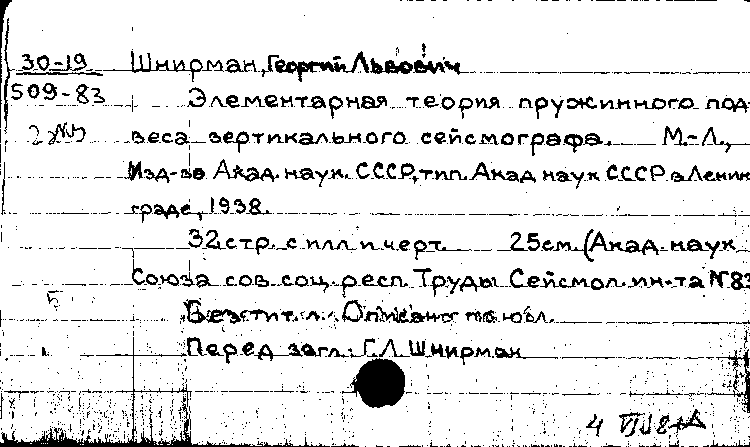 30-19 Шнирман, Георгий Львович
509-83 Элементарная теория пружинного под-
2 экз веса вертикального сейсмографа. М.-Л.,
Изд-во Акад. наук. СССР, тип. Акад. наук СССР в Ленин
граде, 1938.
32 стр. с илл и черт. 25 см. (Акад. наук
Союза сов. соц. респ. Труды Сейсмол. ин-та №83
Без тит. л. Описано по обл.
Перед загл.: Г.Л. Шнирман
4